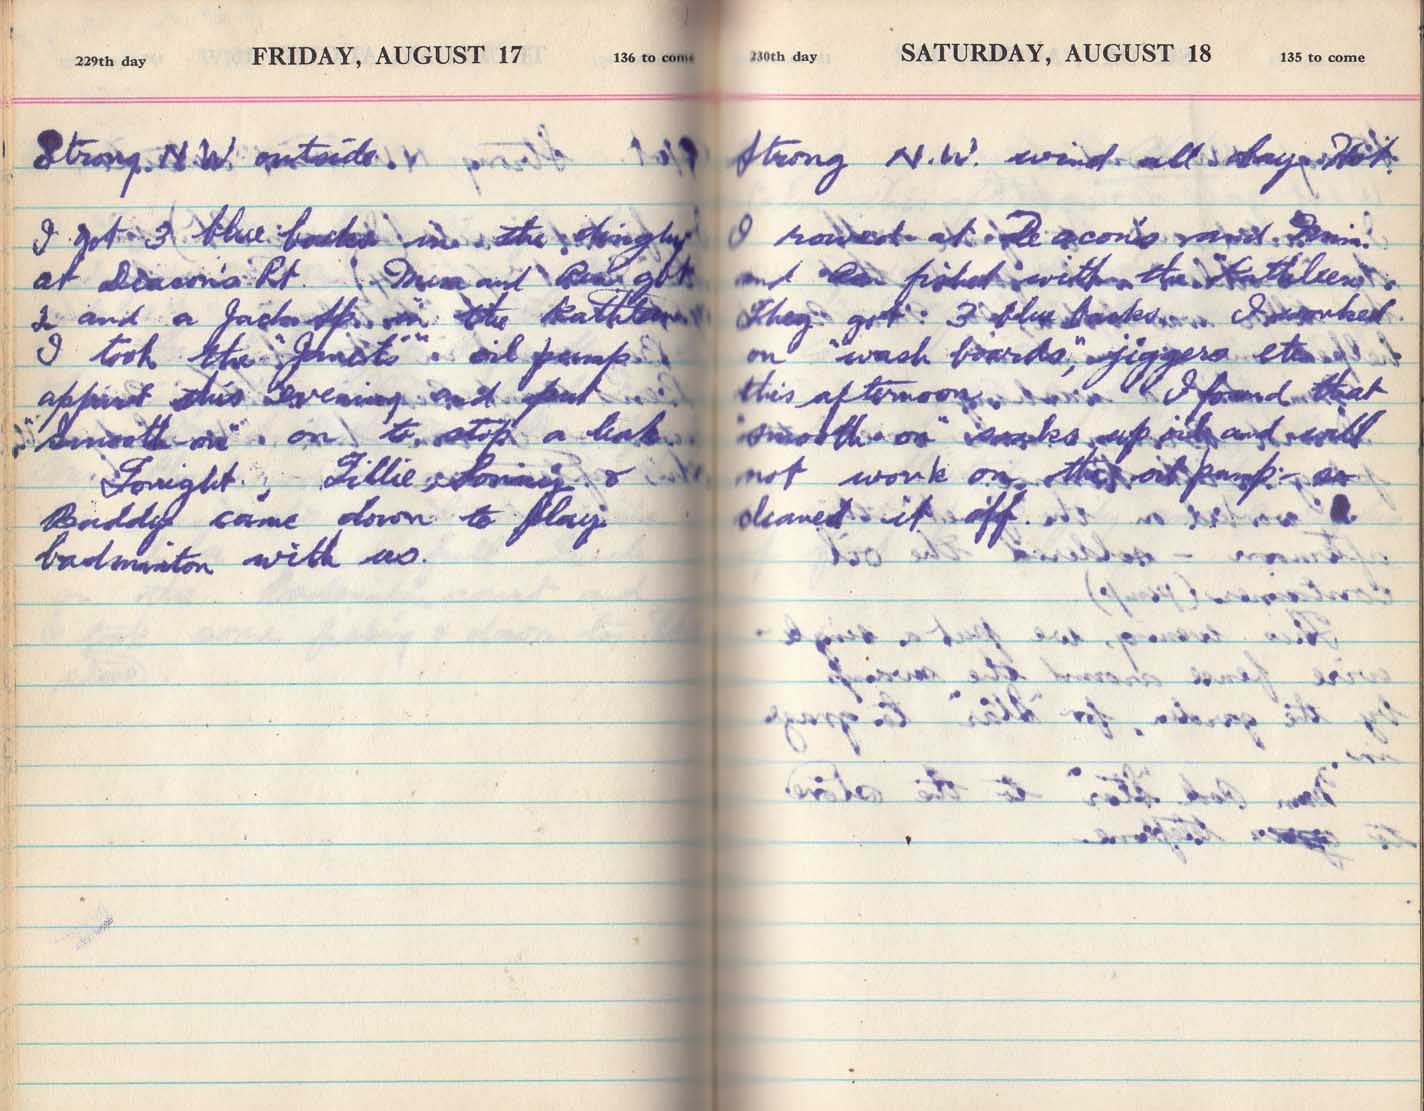 229th day FRIDAY, AUGUST 17 136 to come
Strong N.W. outside.
I got 3 blue backs in the dinghy
at Deacon's Pt. Mum and got
2 and a Jack Sp. in the Kathleen
I took the "Janet's" oil pump
appart this evening and put
"Smooth-on" on to stop a leak.
Tonight, Tillie, &
Buddy came down to play
badminton with us.
230th day SATURDAY, AUGUST 18 135 to come
Strong N.W. wind all day, Hot.
I rowed at Deacon's and
and fished with the "Kathleen".
They got 3 blue backs. I worked
on "wash boards", jiggers etc
this afternoon. I found that
"smooth-on" soaks up oil and will
not work on the oil pump - so
cleaned it off.